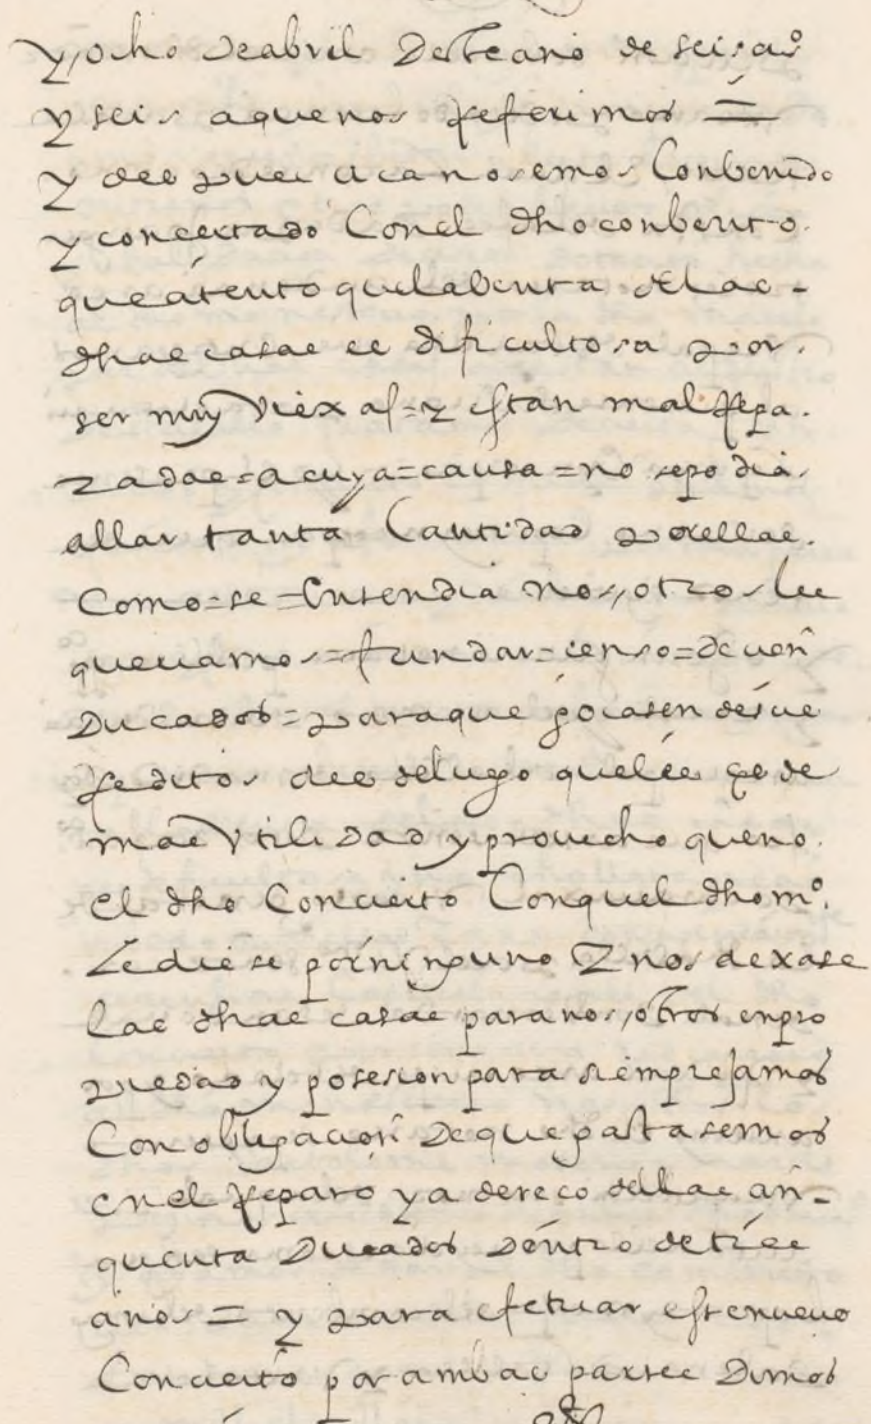 y ocho de abril deste año de seisçios
y seis a que nos referimos =
y despues aca nos emos conbenido
y concertado con el dho conbento.
que atento que la benta de las -
dhas casas es dificultosa por.
ser muy viexas = y estan mal repa.
radas = a cuya = causa = no se podia.
allar tanta cantidad por ellas.
como = se = entendia nosotros les
queriamos = fundar = censo = de cien
ducados = para que goçasen desde
reditos des de lugo que les es de
mas vtilidad y provecho que no.
el dho concierto con que el dho mº.
le diese por ninguno y nos dexase
las dhas casas para nosotros en pro
piedad y posesion para siempre jamas
con obligacion de que gastasemos
en el reparo y adereço dellas çin -
quenta ducados dentro de tres
años = y para efetuar este nuevo
concierto por ambas partes dimos